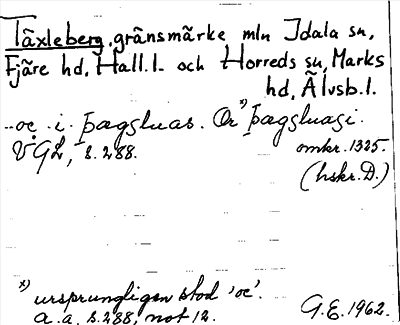 Täxleberg, gränsmärke mln Idala sn,
Fjäre hd, Hall.l. och Horreds sn, Marks
hd, Älvsb.l.
..oc . i . þægsluas . Or x) þægsluasi.
VGL, s. 288. omkr. 1325.
(hskr. D.)
x) ursprungligen stod 'oc'.
a. a. s. 288, not 12. G.E. 1962.